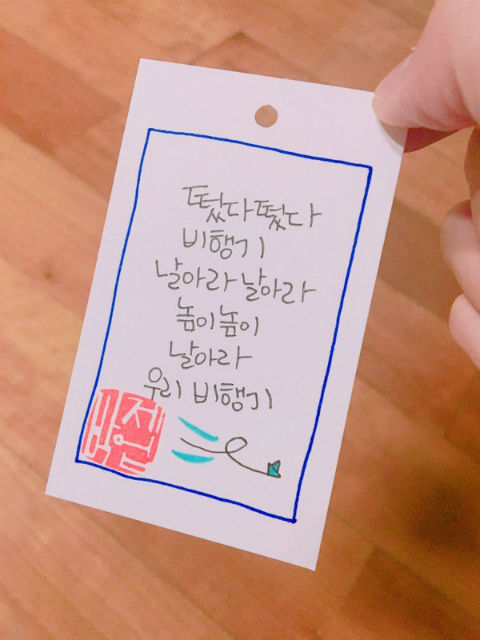 떴다떴다
비행기
날아라 날아라
높이높이
날아라
우리 비행기